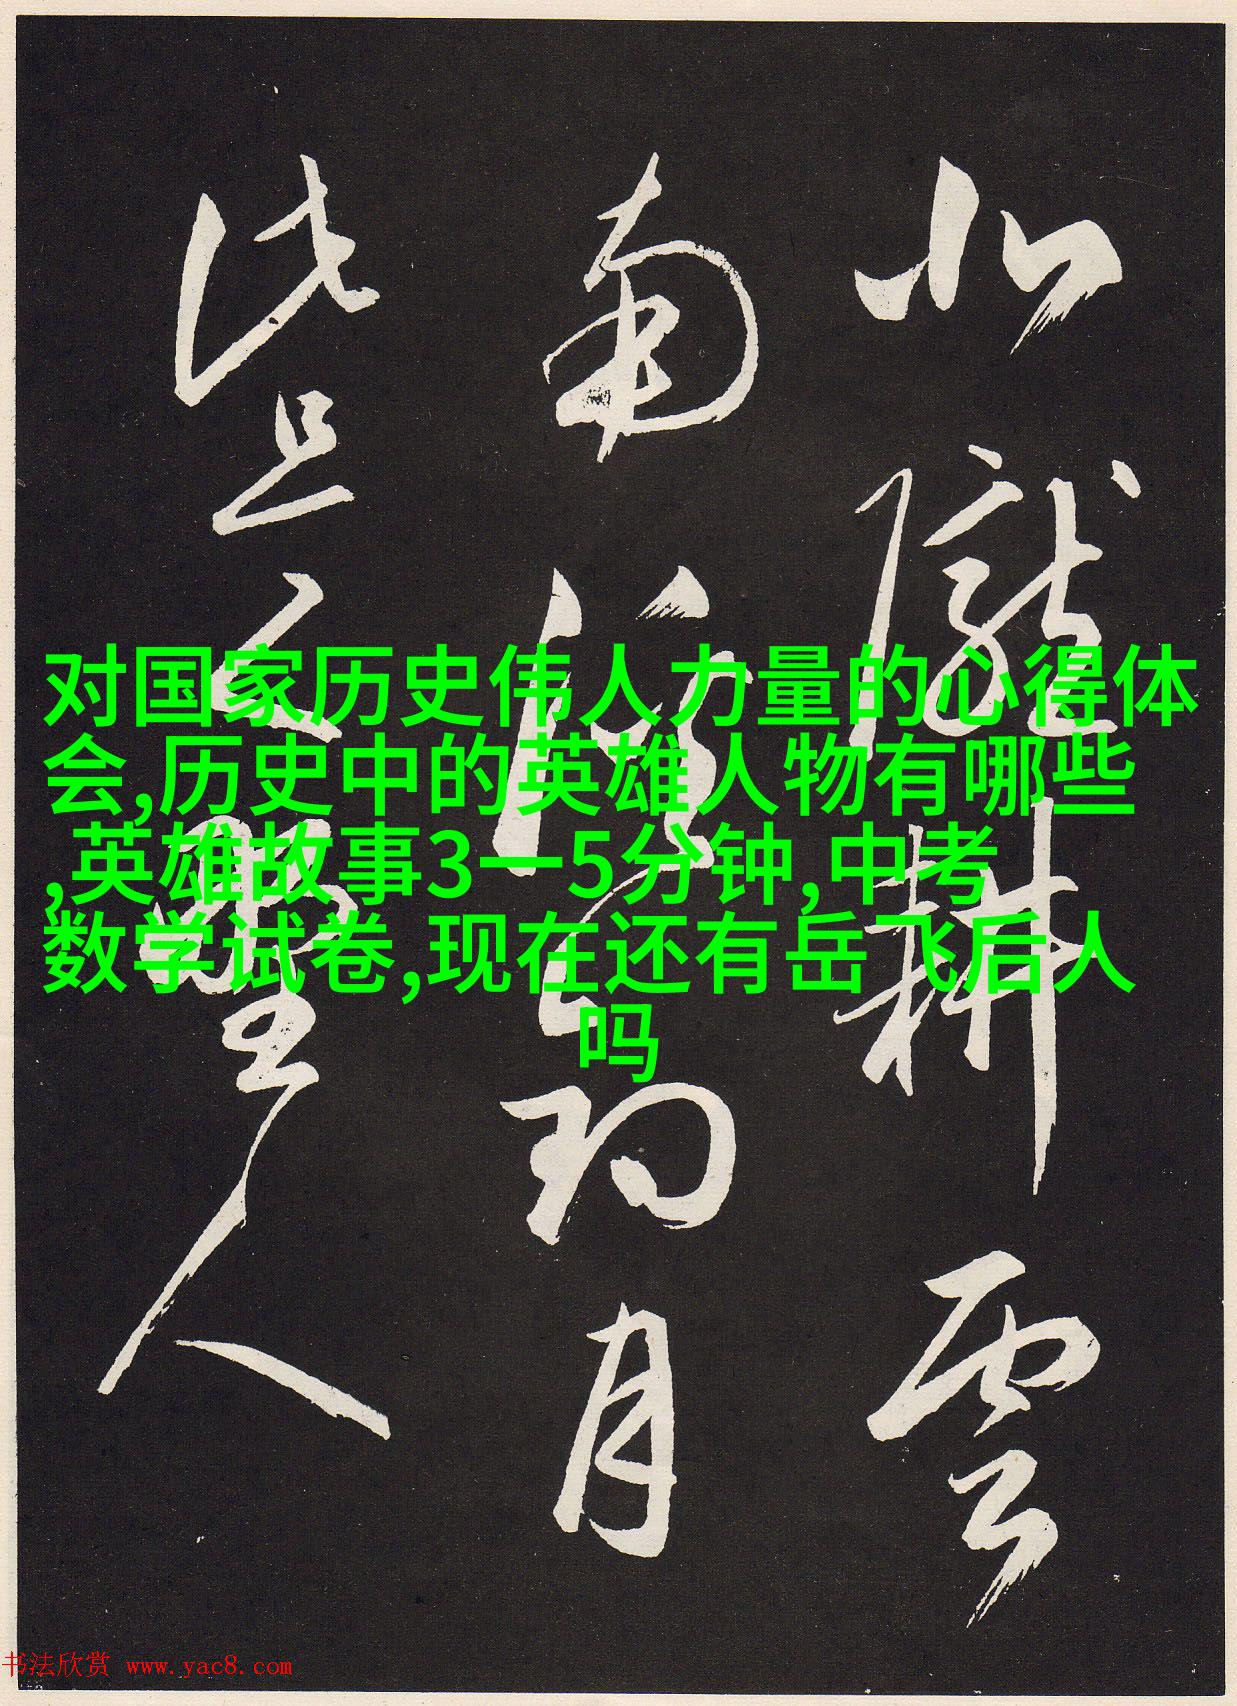 北隴耕雲
南溪釣月
此是野人
对国家历史伟人力量的心得体
会,历史中的英雄人物有哪些
,英雄故事3一5分钟,中考
数学试卷,现在还有岳飞后人
吗
书法欣赏 www.yac8.com